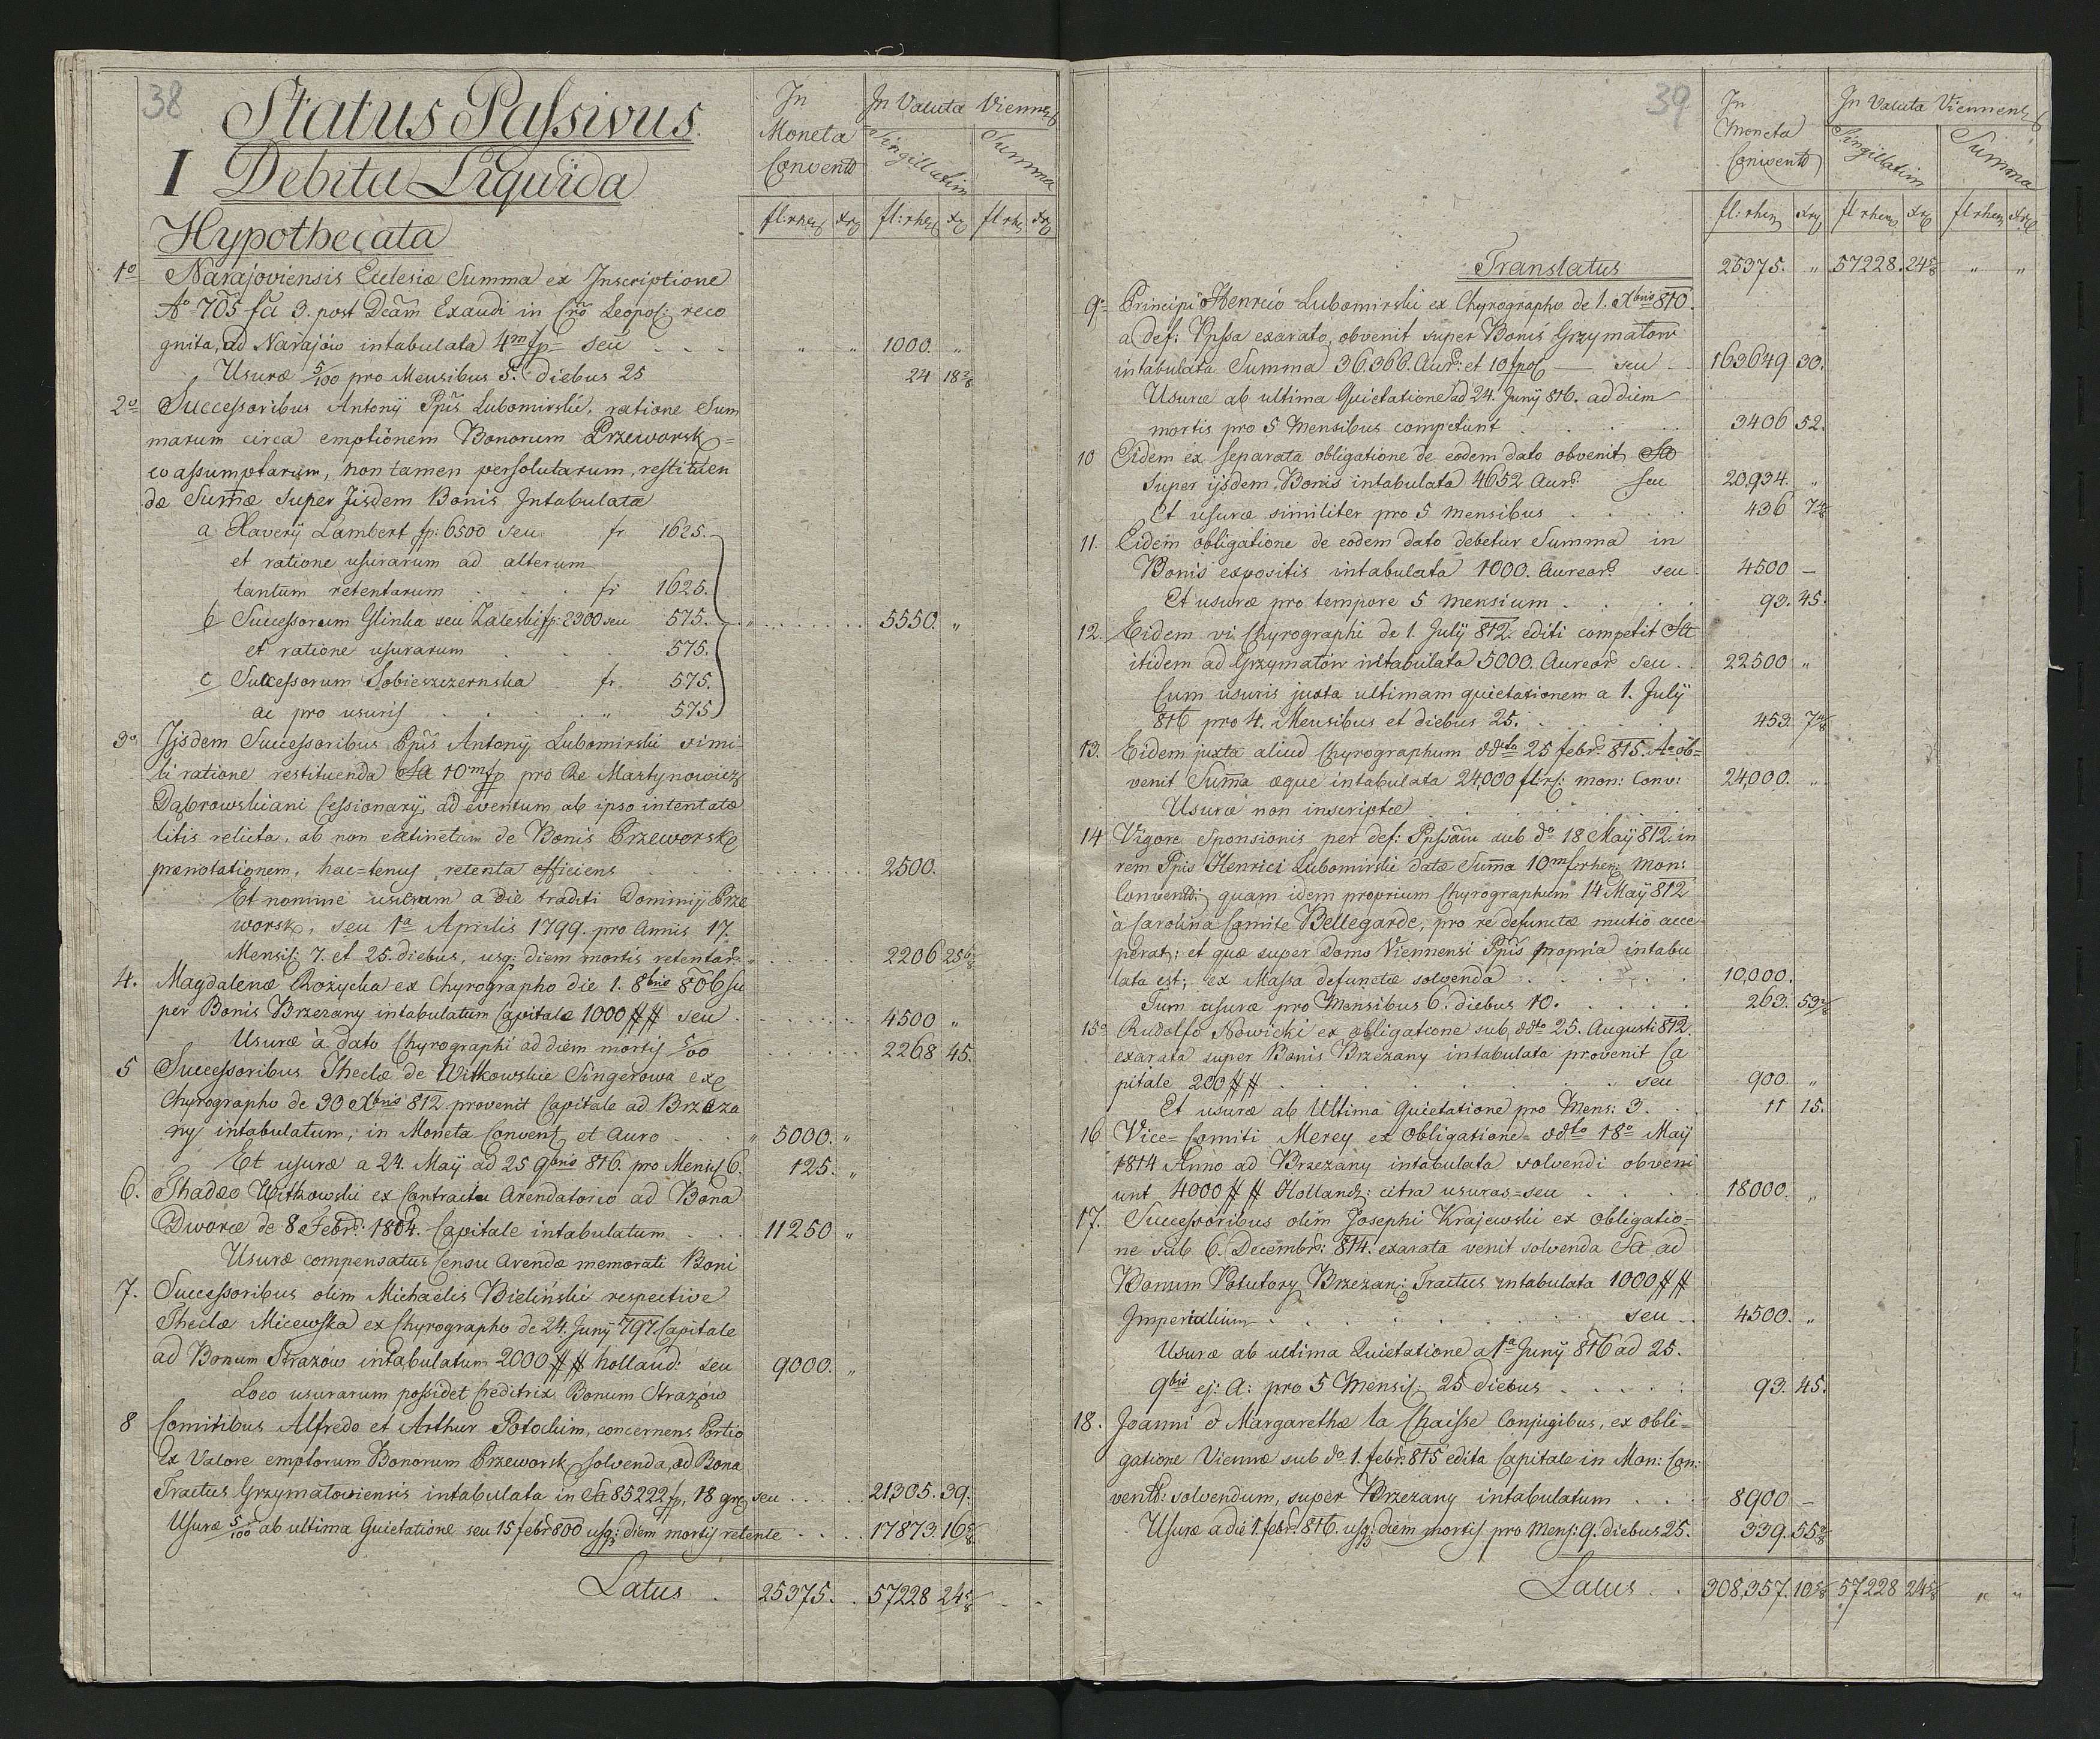 38
Status Passivus.
I Debita Liquida
Hypothecata
In Moneta Convent
In Valuta Viennens
Singillatim
Summa
fl: rhen xry fl: rhen xr fl rhe xry
1o Narajoviensis Ecclesiæ Summa ex Inscriptione
Ao 705 fa 3. post Dcam Exaudi in Cro Leopol: reco
gnita, ad Narajów intabulata 4m fp seu - - - " " 1000. "
Usuræ 5/100 pro Mensibus 5. diebus 25 24 18 2/8
2o Successoribus Antonÿ Ppis Lubomirski, ratione Sum
marum circa emptionem Bonorum Przeworsk=
co assumptarum, non tamen persolutarum, restituen
dæ Summæ super Iisdem Bonis Intabulatæ
a Xaverÿ Lambert fp: 6500 seu fr 1625.
et ratione usurarum ad alterum
tantum retentarum . . . fr 1625.
b Successorum Glinka seu Zaleski fp: 2300 seu 575. " . . . . . . 5550. "
et ratione usurarum . . . 575.
c Successorum Sobieszczernska fr. 575.
ac pro usuris . . . . . " 575
3o Ijsdem Successoribus Ppis Antonÿ Lubomirski simi-
li ratione restituenda Sa 10m fp pro Re Martynowicz
Dąbrowskiani Cessionarÿ, ad eventum ab ipso intentatæ
litis relicta, ob non extinctam de Bonis Przeworsk
prænotationem, hac=tenus retenta efficiens . . . . . . 2500.
Et nomine usurarum a die traditi Dominÿ Prze
worsk, seu 1a Aprilis 1799. pro Annis 17.
Mensis: 7. et 25. diebus, usq: diem mortis retentar: " . . . . . 2206 25 6/8
4. Magdalenæ Rożycka ex Chyrographo die 1. 8bris 806 su
per Bonis Brzezany intabulatum Capitale 1000 ## seu . . . . . . 4500 "
Usuræ à dato Chyrographi ad diem mortis 5/00 . . . . . . 2268 45.
5 Successoribus Theclæ de Witkowskie Singerowa ex
Chyrographo de 30 Xbris 812. provenit Capitale ad Brzeza
ny intabulatum, in Moneta Convent et Auro . . . " 5000. "
Et usuræ a 24. Maÿ ad 25 9bris 816. pro Mensis 6. 125. "
6. Thadæo Witkowski ex Contractu Arendatorio ad Bona
Dworce de 8 Febr: 1804. Capitale intabulatum . . . 11250 "
Usuræ compensatur Censu Arendæ memorati Boni
7. Successoribus olim Michaelis Bieliński respective
Theclæ Micewska ex Chyrographo de 24. Junÿ 797 Capitale
ad Bonum Strazów intabulatum 2000 ## holland: seu 9000. "
Loco usurarum possidet Creditrix Bonum Strazów
8 Comitibus Alfredo et Arthur Potockim, concernens Portio
Ex Valore emptorum Bonorum Przeworsk, solvenda, ad Bona
Tractus Grzymatoviensis intabulata in Sa 85222 fp, 18 gr seu . . . . 21305. 39.
Usuræ 5/100 ab ultima Quietatione seu 15 febr 800 usq: diem mortis retentæ . . . . 17873. 16 5/8
Latus . 25375. . 57228 24 5/8 - -
39
In Moneta Convent
In Valuta Viennens
Singillatim
Summa
fl: rhen xry fl rhen xr fl rhen xr
Translatus 25375. " 57228. 24 5/8 " "
9o Principi Henrico Lubomirski ex Chyrographo de 1. Xbris 810.
a def: Ppssa exarato, obvenit super Bonis Grzymatow
intabulata Summa 36,366. Aur: et 10 fpol — seu 163649 30.
Usuræ ab ultima Quietatione ad 24. Junÿ 816. ad diem
mortis pro 5 Mensibus competunt . . . . . 3406 52.
10 Eidem ex separata obligatione de eodem dato obvenit Sa
super ijsdem Bonis intabulata 4652 Aur: seu 20,934. "
Et usuræ similiter pro 5 mensibus . . . . 436 7 4/8
11. Eidem obligatione de eodem dato debetur Summa in
Bonis expositis intabulata 1000. Aureor: seu 4500 —
Et usuræ pro tempore 5 mensium . . . . . 93. 45.
12. Eidem vi Chyrographi de 1. Julÿ 812. editi competit Sa
itidem ad Grzymatów intabulata 5000. Aureor: seu . . 22500 "
Cum usuris juxta ultimam quietationem a 1. Julÿ
816 pro 4. Mensibus et diebus 25. . . . . . 453. 7 4/8
13. Eidem juxta aliud Chyrographum ddto 25 febr: 815. Ao ob=
venit Summa æque intabulata 24,000 flr: mon: Conv: 24,000. "
Usuræ non inscriptæ . . . . . . .
14 Vigore Sponsionis per def: Ppssam sub do 18 Maÿ 812. in
rem Ppis Henrici Lubomirski datæ Summa 10m frhen: Mon:
Convent: quam idem proprium Chyrographum 14 Maÿ 812
à Carolina Comite Bellegarde, pro re defunctæ mutio acce
perat; et quæ super Domo Viennensi Ppis propria intabu
lata est; ex Massa defunctæ solvenda . . . . . . 10,000.
Tum usuræ pro Mensibus 6. diebus 10. . . . . . 263. 53 2/8
15o Rudolfo Nowicki ex obligatione sub ddto 25. Augusti 812.
exarata super Bonis Brzezany intabulata provenit Ca
pitale 200 ## . . . . . . . . seu 900. "
Et usuræ ab Ultima Quietatione pro Mens: 3. . . 11 15.
16 Vice=Comiti Merey ex Obligatione ddto 18o Maÿ
1814 Anno ad Brzezany intabulata solvendi obveni
unt 4000 ## Holland: citra usuras=seu . . . . 18000. "
17. Successoribus olim Josephi Krajewski ex obligatio=
ne sub 6. Decembr: 814. exarata venit solvenda Sa, ad
Bonum Potutory Brzezan: Tractus intabulata 1000 ##
Imperialium . . . . . . . . seu . . 4500. "
Usuræ ab ultima Quietatione a 1a Junÿ 816 ad 25.
9bis ej: A: pro 5 Mensis 25 diebus . . . . . 93. 45.
18. Joanni & Margarethæ la Chaisse Conjugibus, ex obli=
gatione Viennæ sub do 1. febr: 815 edita Capitale in Mon: Con:
vent: solvendum, super Brzezany intabulatum . . . 8900 —
Usuræ a die 1. febr: 816. usq: diem mortis pro Mens: 9. diebus 25. 339. 55 2/8
Latus . . 308,357. 10 5/8 57228 24 5/8 " "